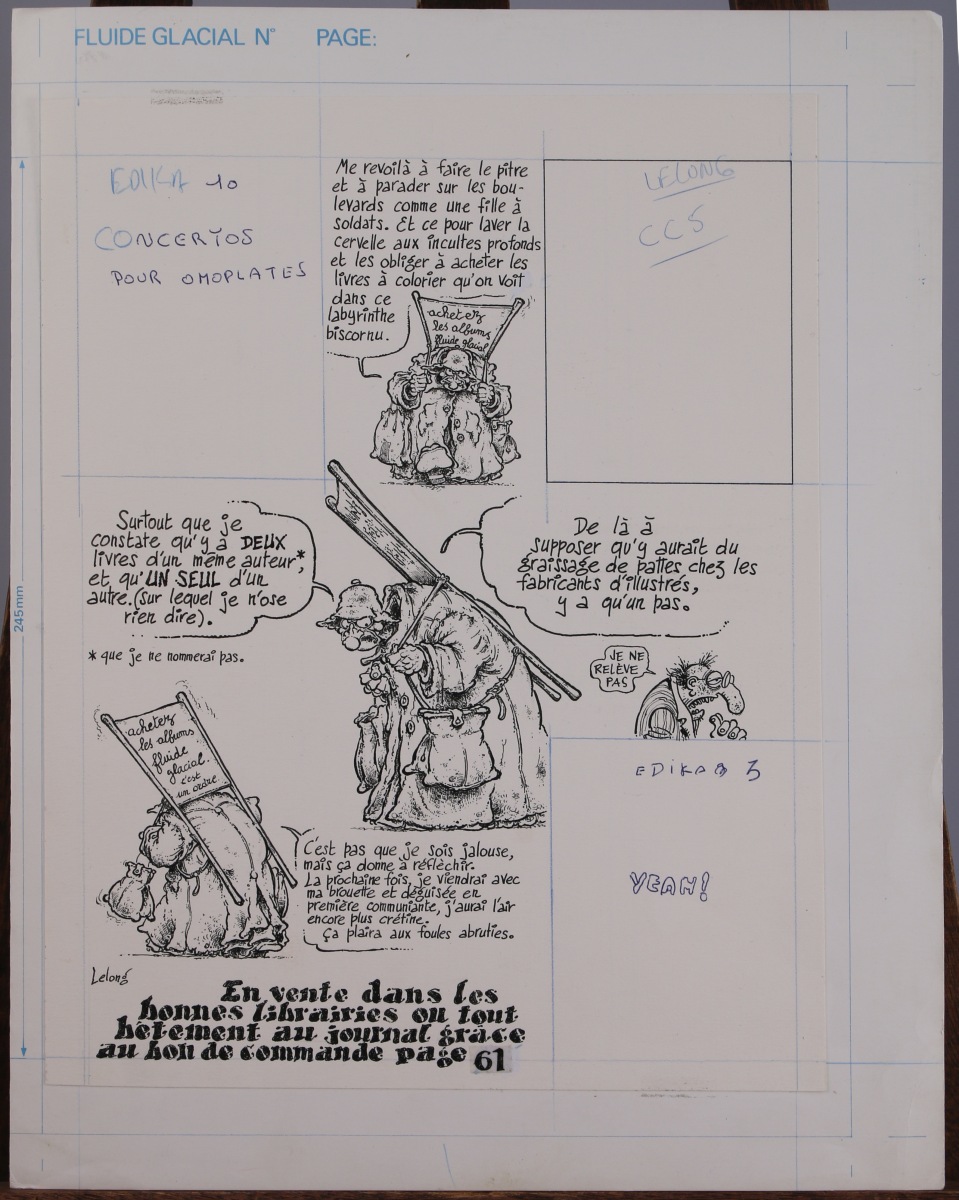 FLUIDE GLACIAL N° PAGE:
EDIKA 10
CONCERTOS
POUR OMOPLATES
Me revoilà à faire le pitre
et à parader sur les bou-
levards comme une fille à
soldats. Et ce pour laver la
cervelle aux incultes profonds
et les obliger à acheter les
livres à colorier qu'on voit
dans ce
labyrinthe
biscornu.
achetez
les albums
fluide glacial
LELONG
CC5
Surtout que je
constate qu'y a DEUX
livres d'un même auteur,*
et qu'UN SEUL d'un
autre.(sur lequel je n'ose
rien dire).
* que je ne nommerai pas.
De là à
supposer qu'y aurait du
graissage de pattes chez les
fabricants d'illustrés,
y a qu'un pas.
JE NE
RELÈVE
PAS
245mm
achetez
les albums
fluide
glacial.
c'est
un ordre
C'est pas que je sois jalouse,
mais ça donne à réfléchir.
La prochaine fois, je viendrai avec
ma brouette et déguisée en
première communiante, j'aurai l'air
encore plus crétine.
Ça plaira aux foules abruties.
EDIKA 3
YEAH!
Lelong
En vente dans les
bonnes librairies ou tout
bêtement au journal grâce
au bon de commande page 61